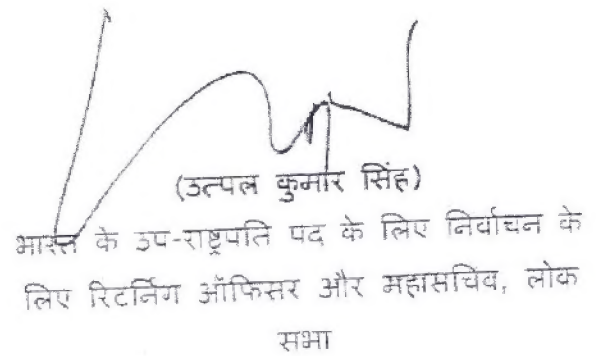 (उत्पल कुमार सिंह)
भारत के उप-राष्ट्रपति पद के लिए निर्वाचन के
लिए रिटर्निग ऑफिसर और महासचिव, लोक
सभा